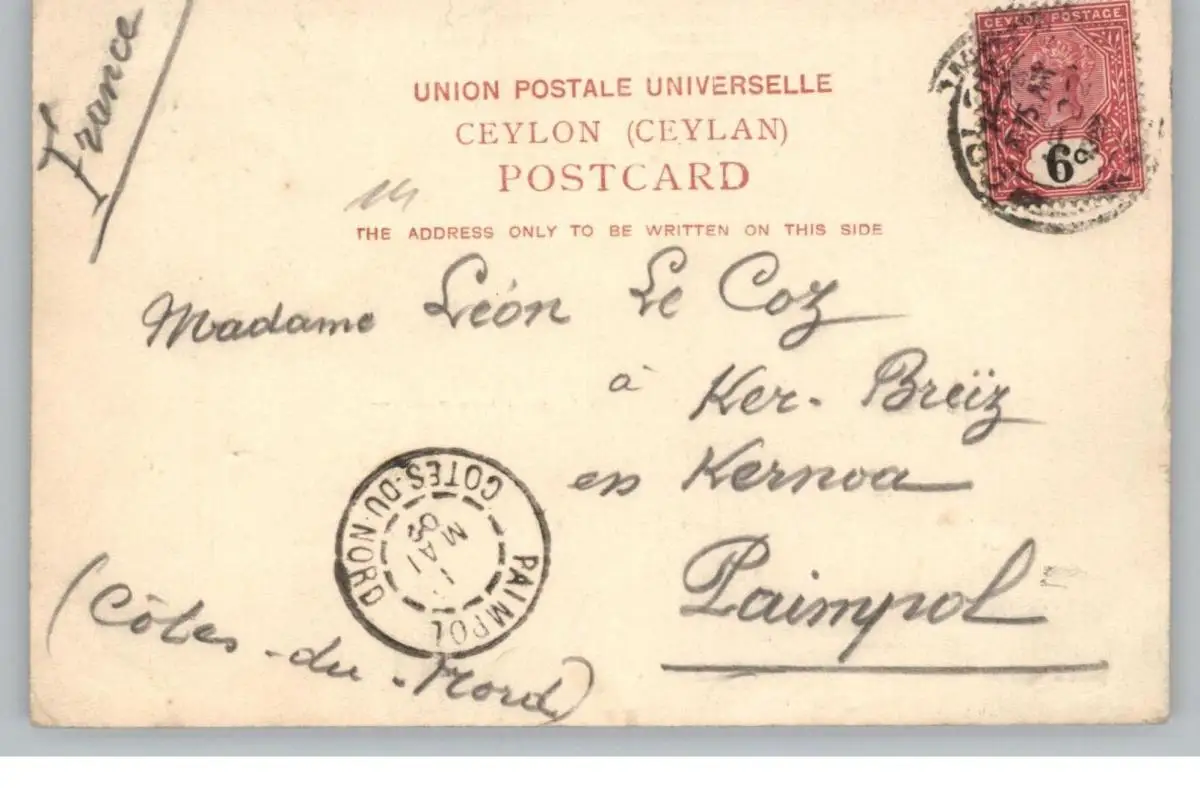 France
CEYLON POSTAGE
6c
UNION POSTALE UNIVERSELLE
CEYLON (CEYLAN)
POSTCARD
THE ADDRESS ONLY TO BE WRITTEN ON THIS SIDE
Madame Léon Le Coz
à Ker-Breïz
en Kernoa
Paimpol
(Côtes-du-Nord)
PAIMPOL
MAI
COTES-DU-NORD